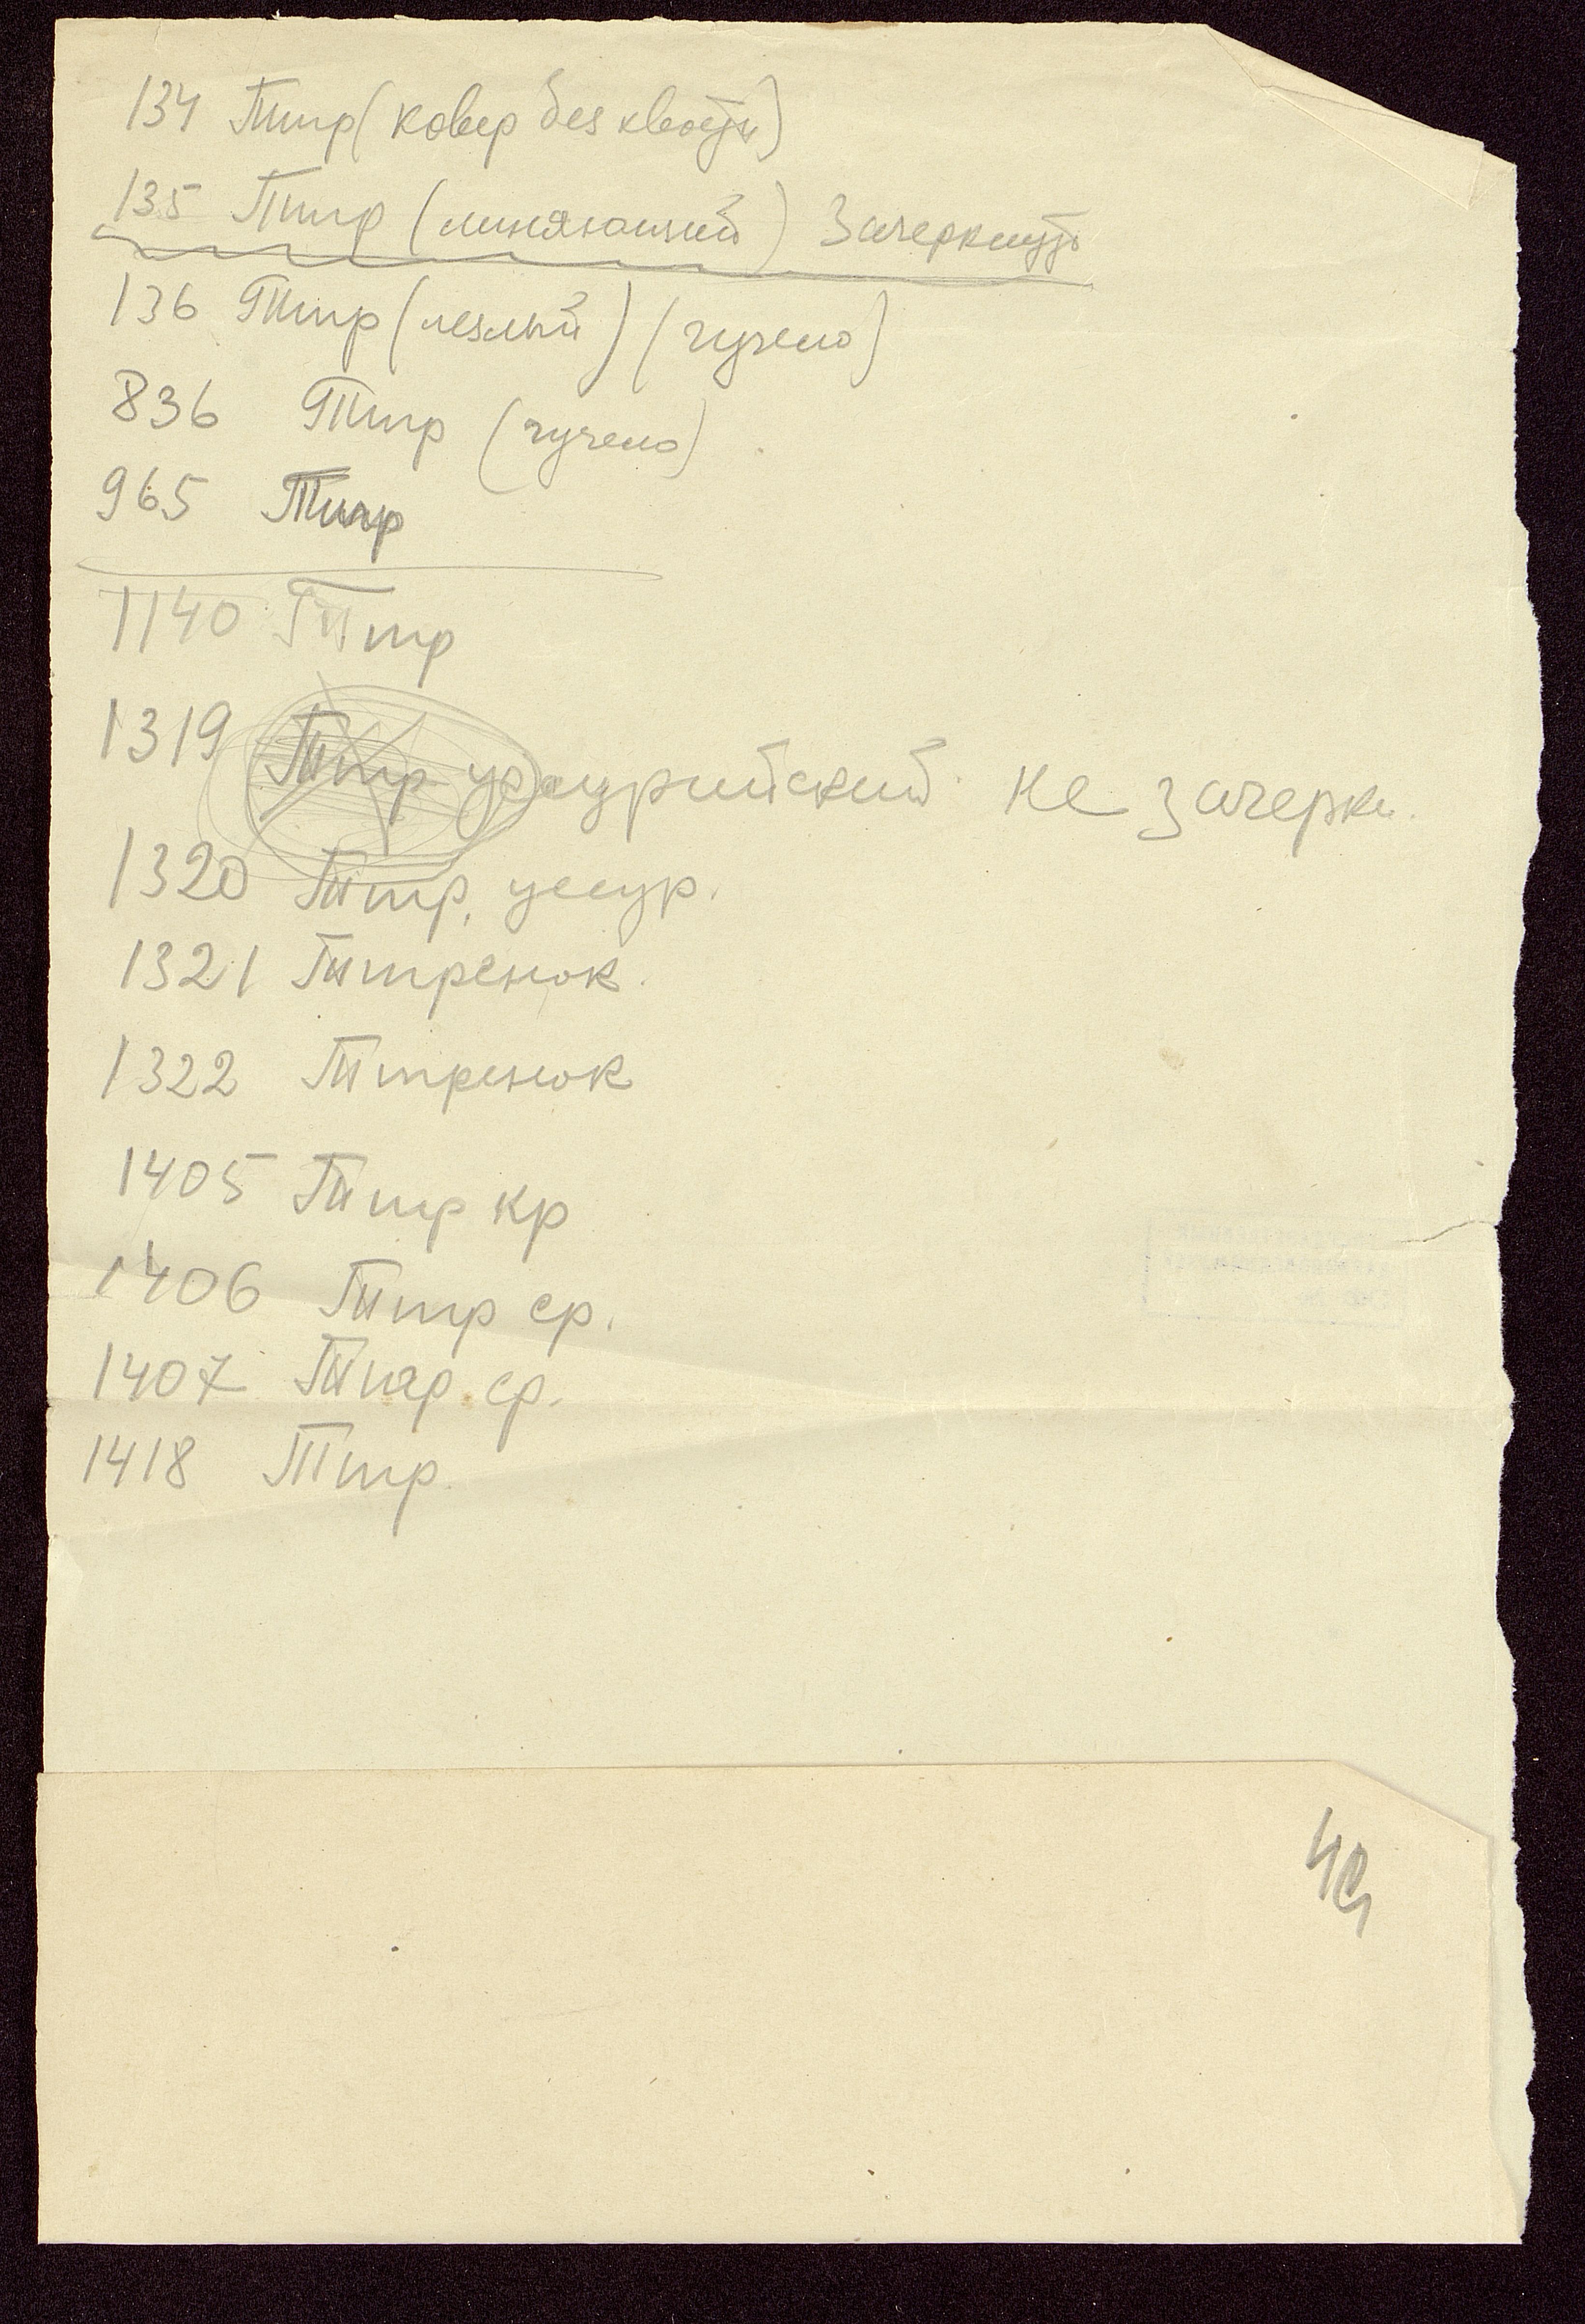 134 Тигр (ковер без хвоста)
135 Тигр (линяющий) Зачеркнуть
136 Тигр (лезлый) (чучело)
836 Тигр (чучело)
965 Тигр
1140 Тигр
1319 Тигр уссурийский не зачеркн.
1320 Тигр. уссур.
1321 Тигренок.
1322 Тигренок
1405 Тигр кр
1406 Тигр ср.
1407 Тигр ср.
1418 Тигр